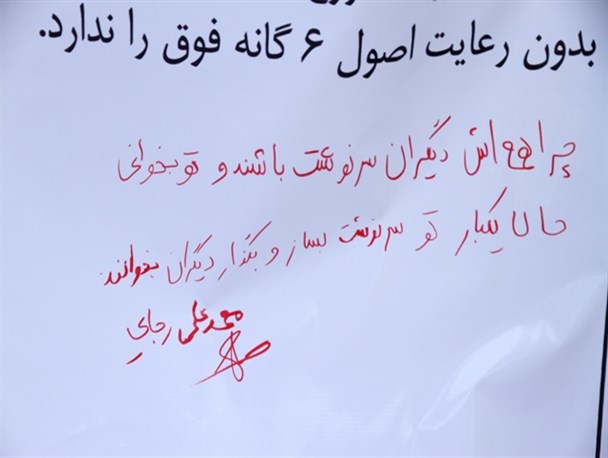 بدون رعایت اصول ۶ گانه فوق را ندارد.
چرا همه‌اش دیگران سرنوشت باشند و تو بخوانی
حالا یکبار تو سرنوشت بساز و بگذار دیگران بخوانند
محمد علی رجایی